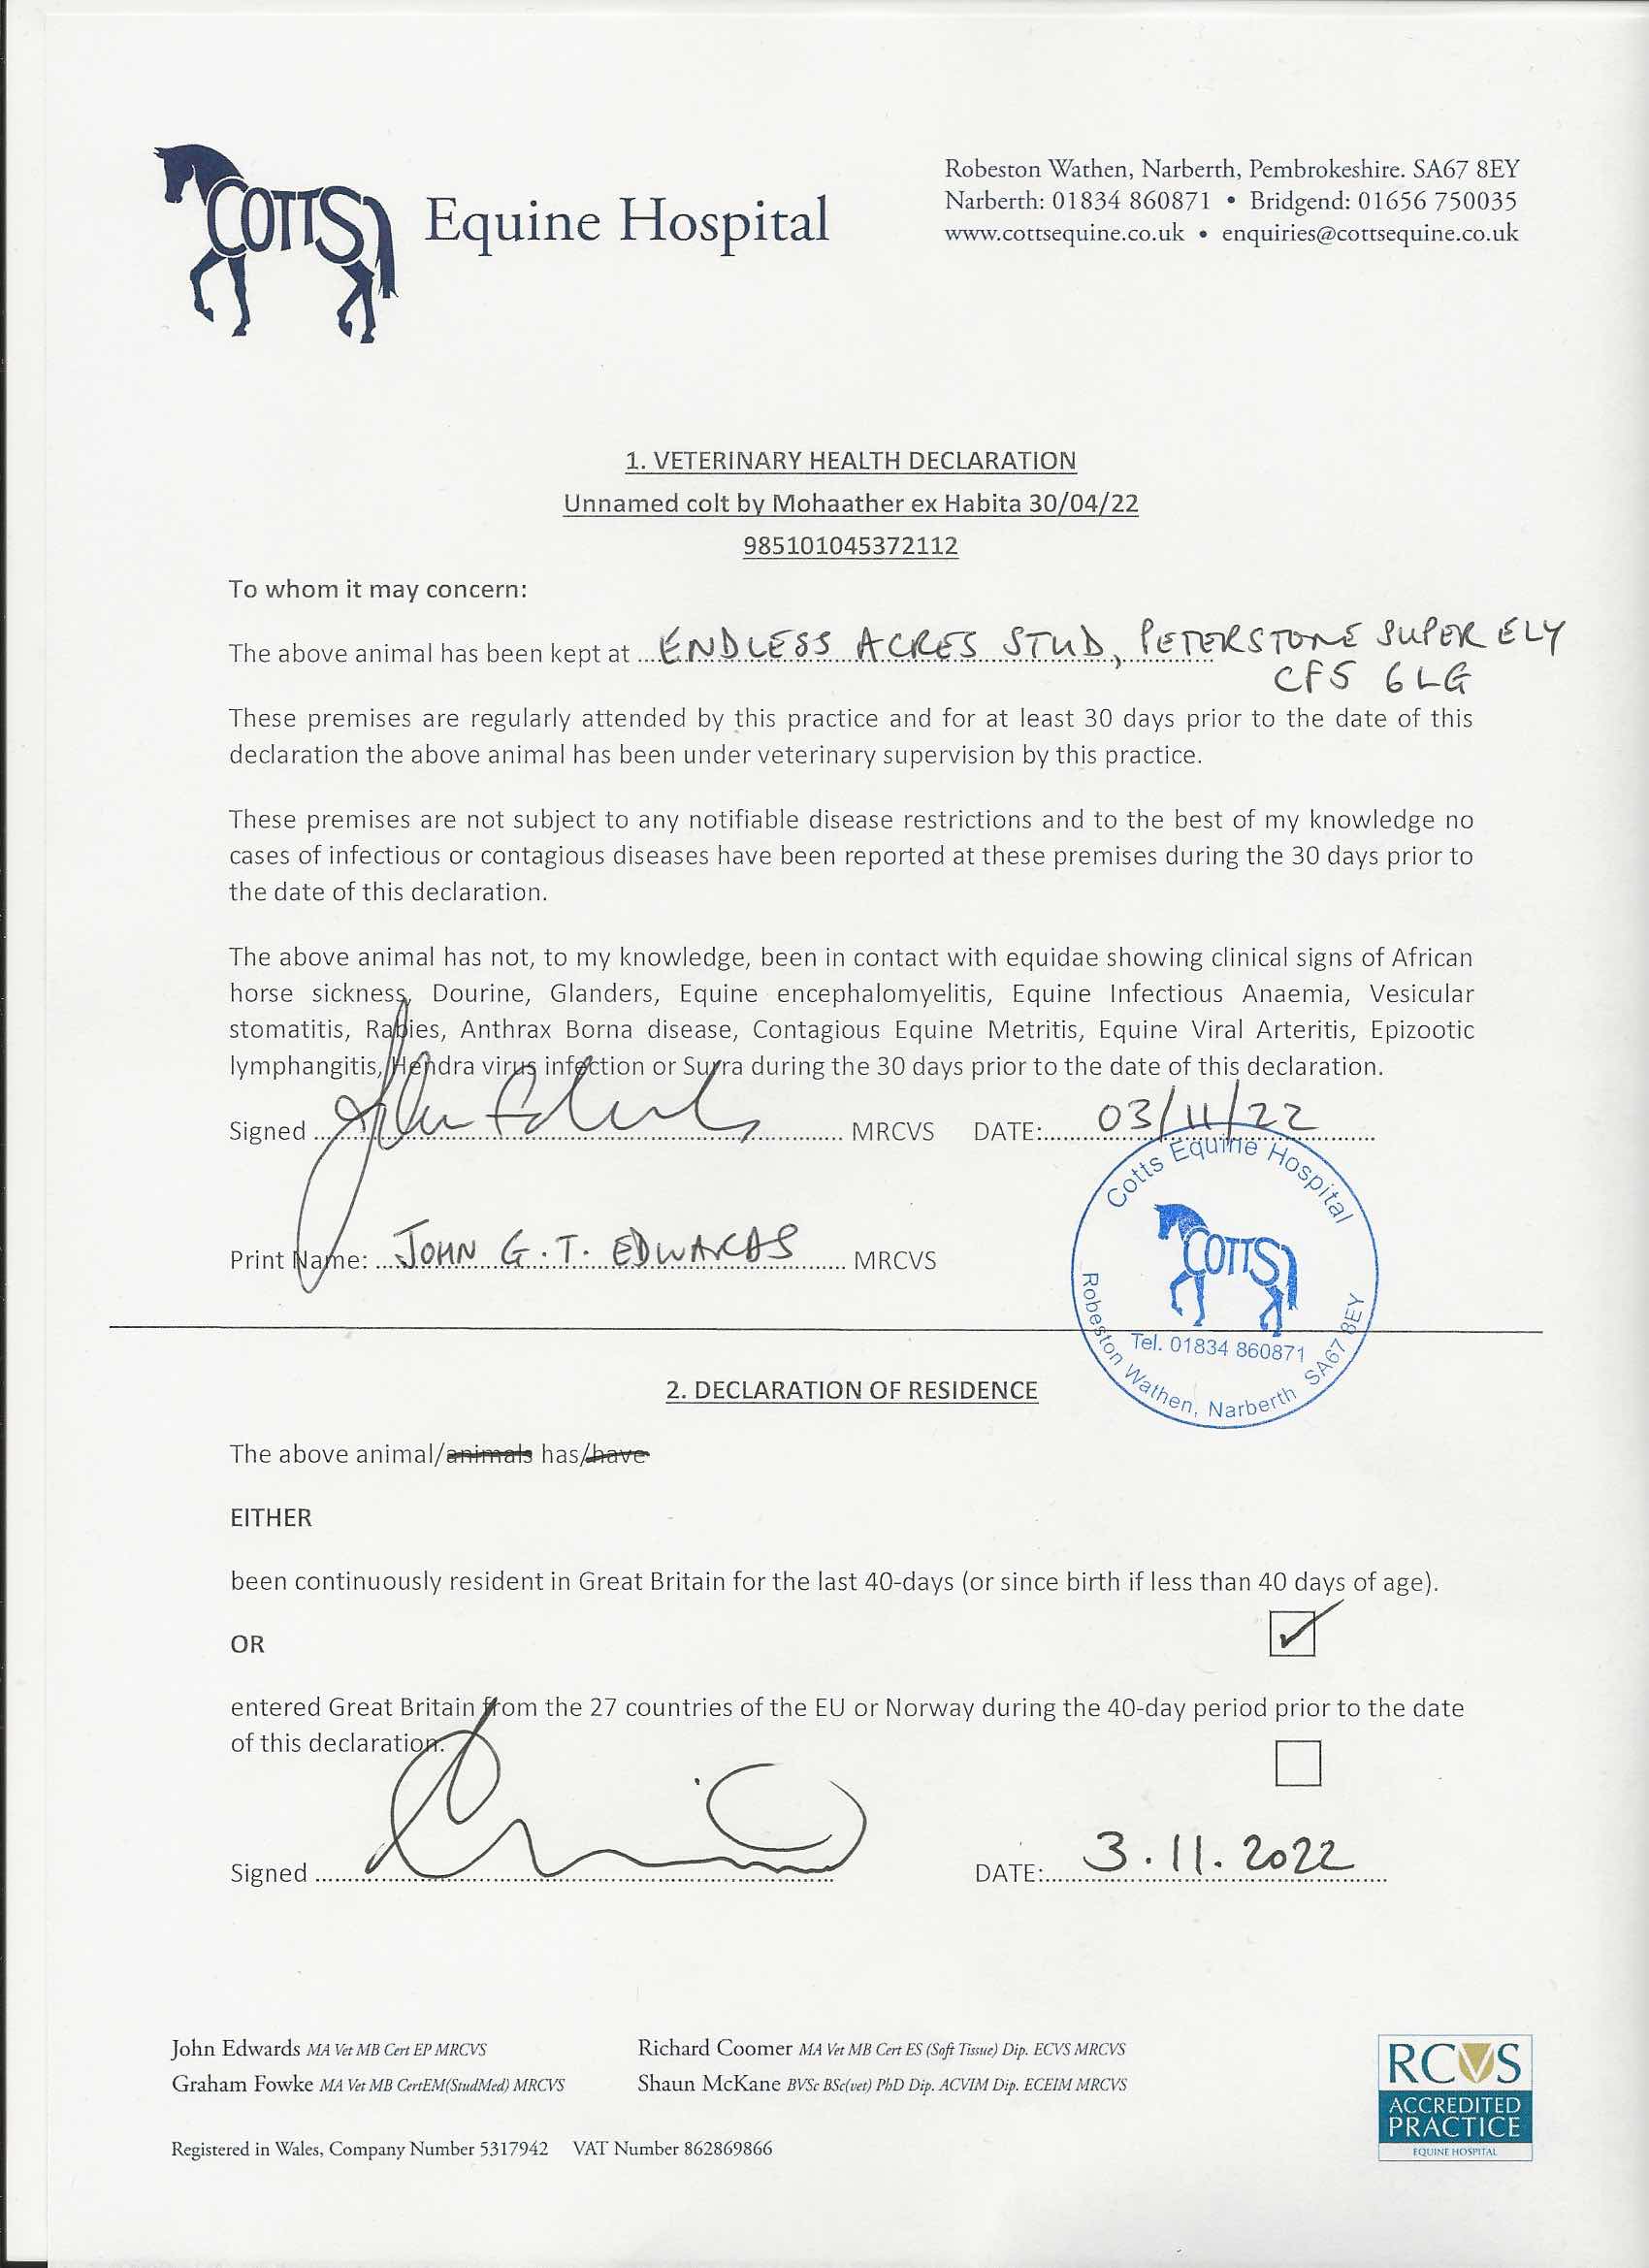 COTTS Equine Hospital
Robeston Wathen, Narberth, Pembrokeshire. SA67 8EY
Narberth: 01834 860871 • Bridgend: 01656 750035
www.cottsequine.co.uk • enquiries@cottsequine.co.uk
1. VETERINARY HEALTH DECLARATION
Unnamed colt by Mohaather ex Habita 30/04/22
985101045372112
To whom it may concern:
The above animal has been kept at ... ENDLESS ACRES STUD, PETERSTONE SUPER ELY
CF5 6LG
These premises are regularly attended by this practice and for at least 30 days prior to the date of this
declaration the above animal has been under veterinary supervision by this practice.
These premises are not subject to any notifiable disease restrictions and to the best of my knowledge no
cases of infectious or contagious diseases have been reported at these premises during the 30 days prior to
the date of this declaration.
The above animal has not, to my knowledge, been in contact with equidae showing clinical signs of African
horse sickness, Dourine, Glanders, Equine encephalomyelitis, Equine Infectious Anaemia, Vesicular
stomatitis, Rabies, Anthrax Borna disease, Contagious Equine Metritis, Equine Viral Arteritis, Epizootic
lymphangitis, Hendra virus infection or Surra during the 30 days prior to the date of this declaration.
Signed John Edwards MRCVS DATE: 03/11/22
Print Name: JOHN G.T. EDWARDS MRCVS
Cotts Equine Hospital
COTTS
Tel. 01834 860871
Robeston Wathen, Narberth SA67 8EY
2. DECLARATION OF RESIDENCE
The above animal/animals has/have
EITHER
been continuously resident in Great Britain for the last 40-days (or since birth if less than 40 days of age).
OR
entered Great Britain from the 27 countries of the EU or Norway during the 40-day period prior to the date
of this declaration.
Signed DATE: 3.11.2022
John Edwards MA Vet MB Cert EP MRCVS
Graham Fowke MA Vet MB CertEM(StudMed) MRCVS
Richard Coomer MA Vet MB Cert ES (Soft Tissue) Dip. ECVS MRCVS
Shaun McKane BVSc BSc(vet) PhD Dip. ACVIM Dip. ECEIM MRCVS
Registered in Wales, Company Number 5317942 VAT Number 862869866
RCVS
ACCREDITED
PRACTICE
EQUINE HOSPITAL